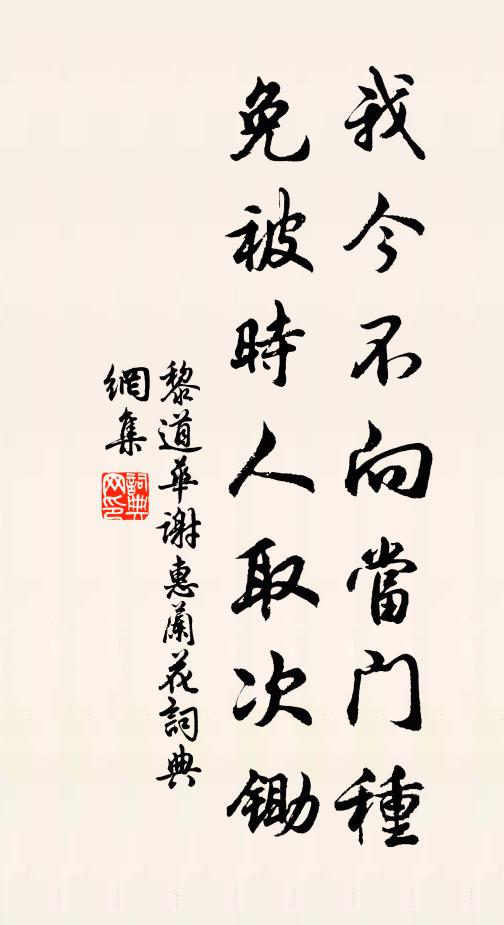 我今不向當門種
免被時人取次鋤
黎道華謝惠蘭花詞典
網集
詞典
网印